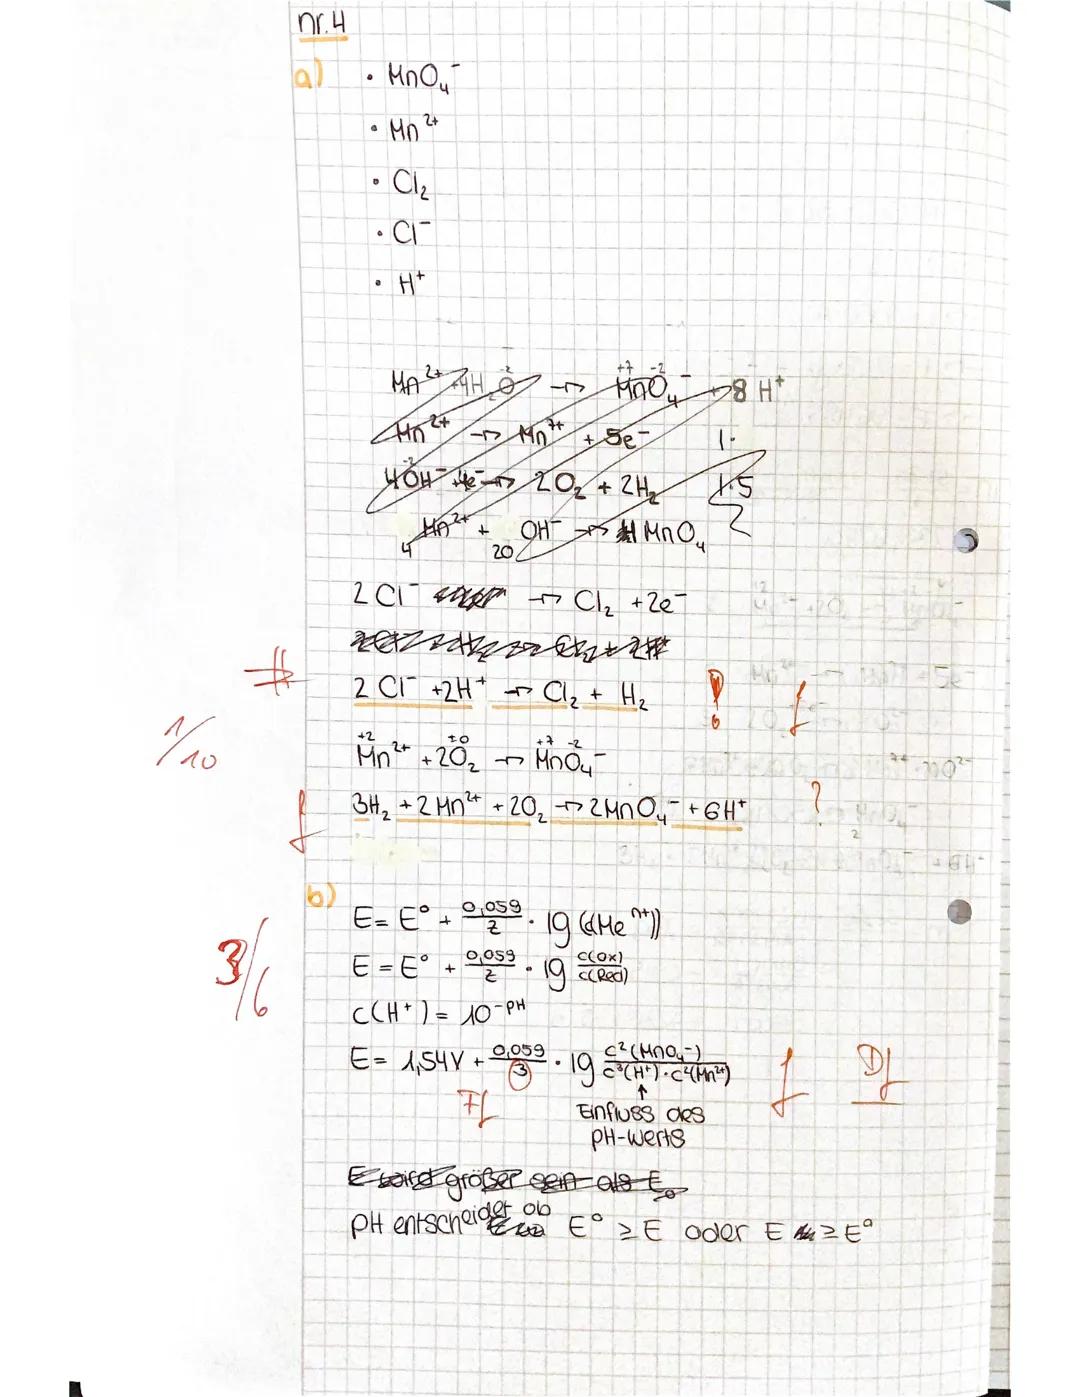 nr. 4
a) • MnO₄⁻
• Mn²⁺
• Cl₂
• Cl⁻
• H⁺
Mn²⁺ + 4H₂O⁻² → Mn⁺⁷O₄⁻² ⁻ + 8 H⁺
Mn²⁺ → Mn⁷⁺ + 5e⁻ | 1·
4OH⁻ + 4e⁻ → 2O₂ + 2H₂ | 1·5
4 Mn²⁺ + 20 OH⁻ → 4 MnO₄
2 Cl⁻ → Cl₂ + 2e⁻
2 Cl⁻ + 2H⁺ → Cl₂ + H₂ ! f
1/10
+2 ±0 +7 -2
Mn²⁺ + 2O₂ → MnO₄⁻
f 3H₂ + 2Mn²⁺ + 2O₂ → 2MnO₄⁻ + 6H⁺ ?
b)
E = E° + 0,059/z · lg (c(Meⁿ⁺))
3/6
E = E° + 0,059/z · lg c(Ox)/c(Red)
c(H⁺) = 10⁻ᵖᴴ
E = 1,54V + 0,059/3 · lg c²(MnO₄⁻)/c³(H⁺)·c⁴(Mn²⁺) f Df
Ff
↑
Einfluss des
pH-Werts
E wird größer sein als E₀
pH entscheidet ob E° ≥ E oder E ≥ E°